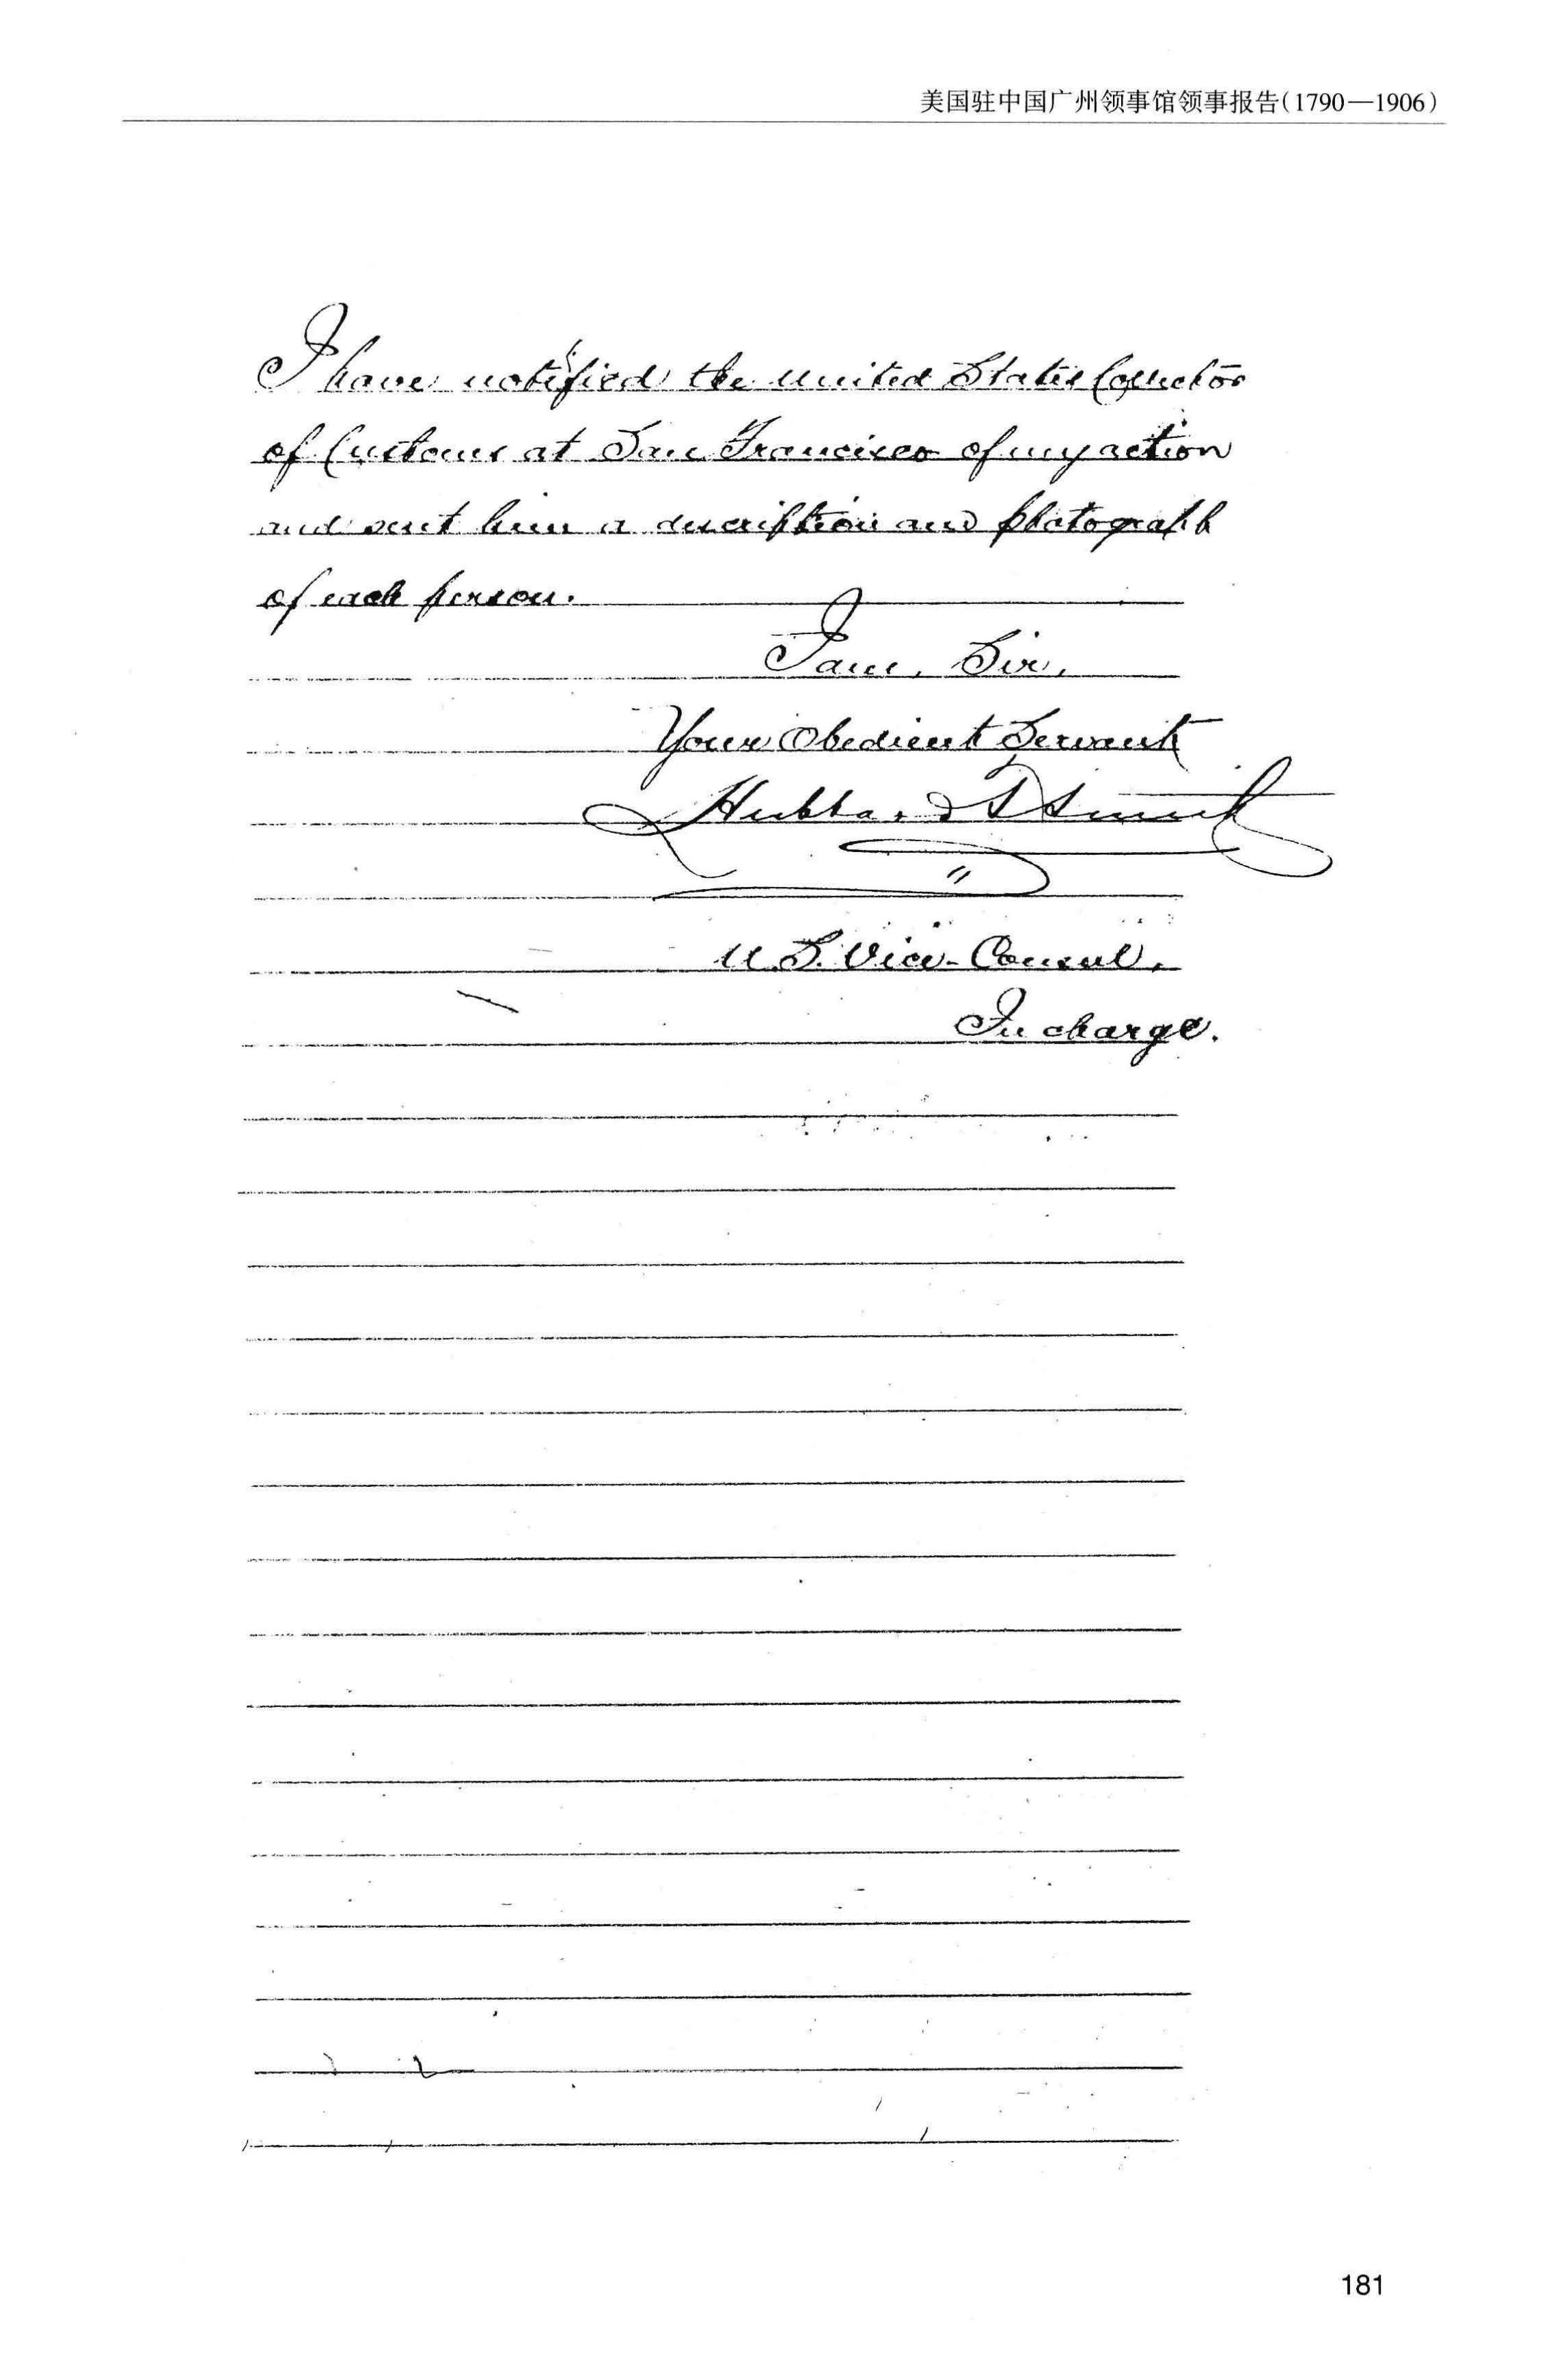 美国驻中国广州领事馆领事报告(1790—1906)
I have notified the United States Collector
of Customs at San Francisco of my action
and sent him a description and photograph
of each person.
I am, Sir,
Your Obedient Servant
Hubbard T Smith
U.S. Vice-Consul,
In charge.
181